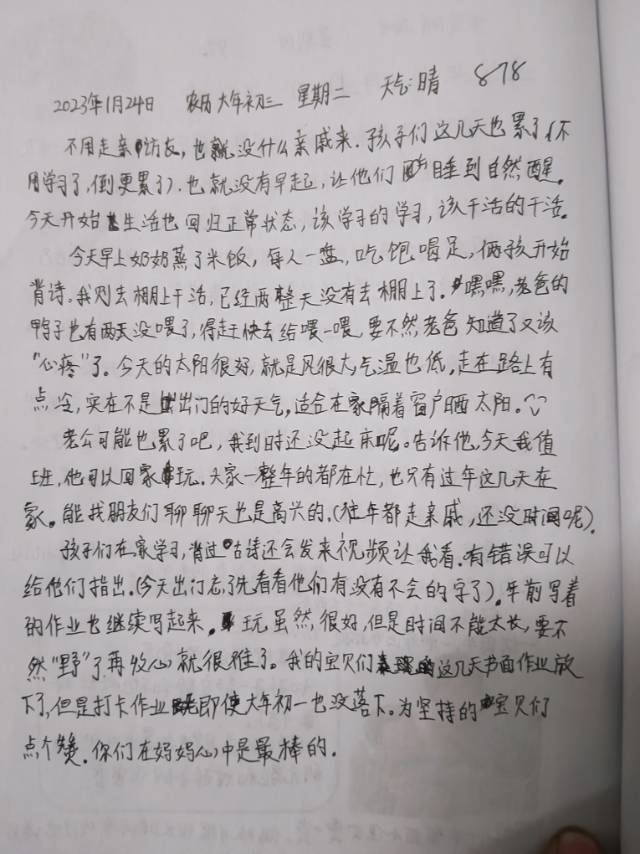 2023年1月24日 农历大年初三 星期二 天气:晴 878
不用走亲访友,也就没什么亲戚来.孩子们这几天也累了(不
用学习了,倒更累了).也就没有早起,让他们睡到自然醒。
今天开始生活也回归正常状态,该学习的学习,该干活的干活。
今天早上奶奶蒸了米饭,每人一盘,吃饱喝足,俩孩开始
背诗.我则去棚上干活,已经两整天没有去棚上了.嘿嘿,老爸的
鸭子也有两天没喂了,得赶快去给喂一喂.要不然老爸知道了又该
“心疼”了.今天的太阳很好,就是风很大,气温也低,走在路上有
点冷,实在不是出门的好天气,适合在家隔着窗户晒太阳.
老公可能也累了吧,我到时还没起床呢.告诉他,今天我值
班,他可以回家玩.大家一整年的都在忙,也只有过年这几天在
家。能找朋友们聊聊天也是高兴的.(往年都走亲戚,还没时间呢).
孩子们在家学习,背过古诗还会发来视频让我看.有错误可以
给他们指出.(今天出门忘了先看看他们有没有不会的字了).年前写着
的作业也继续写起来.玩虽然很好,但是时间不能太长,要不
然“野”了再收心就很难了.我的宝贝们这几天书面作业放
下了,但是打卡作业即使大年初一也没落下.为坚持的宝贝们
点个赞.你们在妈妈心中是最棒的.